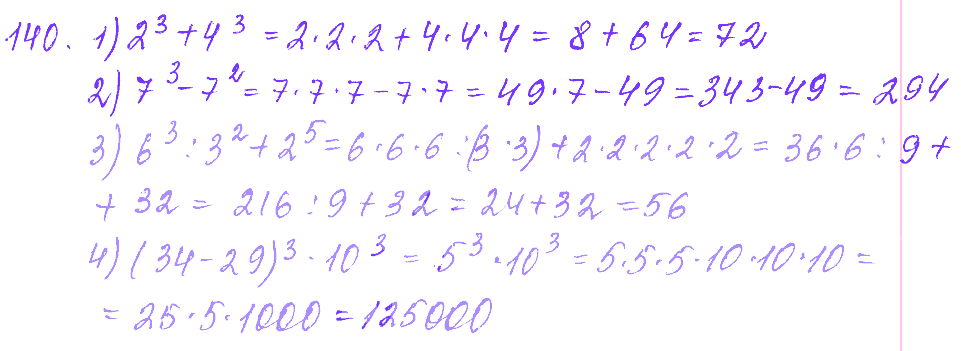 140. 1) 2³ + 4³ = 2·2·2 + 4·4·4 = 8 + 64 = 72
2) 7³ - 7² = 7·7·7 - 7·7 = 49·7 - 49 = 343 - 49 = 294
3) 6³ : 3² + 2⁵ = 6·6·6 : (3·3) + 2·2·2·2·2 = 36·6 : 9 +
+ 32 = 216 : 9 + 32 = 24 + 32 = 56
4) (34 - 29)³ · 10³ = 5³ · 10³ = 5·5·5·10·10·10 =
= 25·5·1000 = 125000